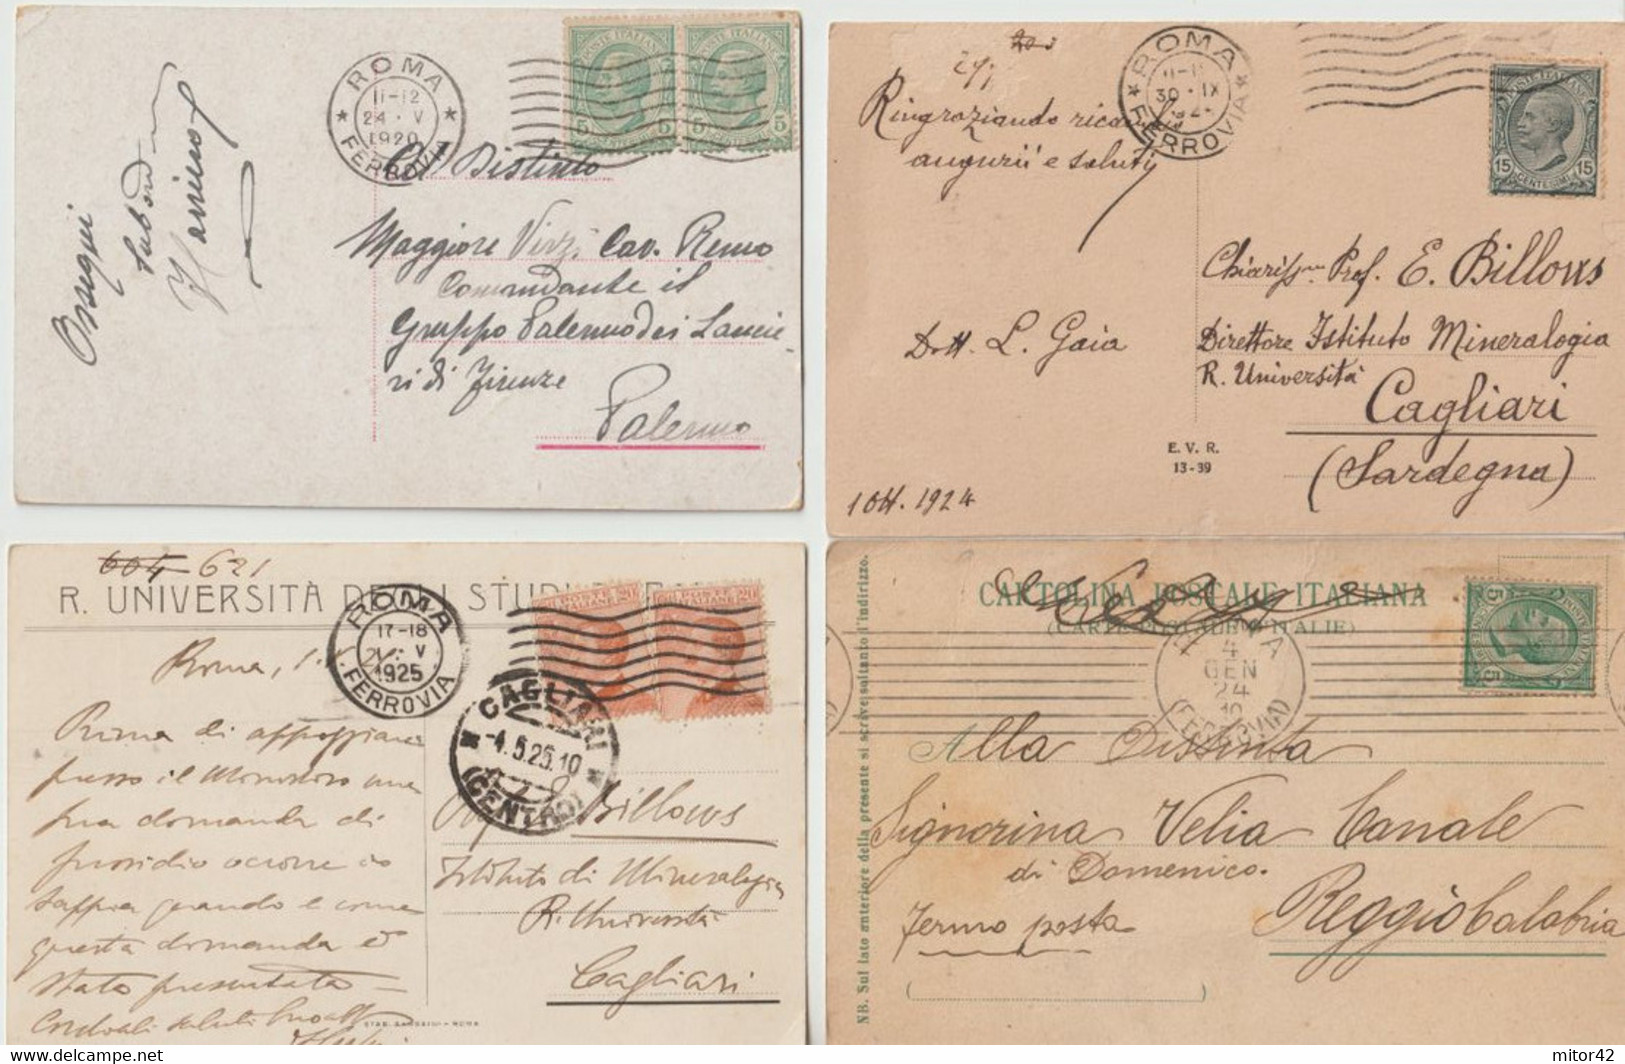 ROMA
11-12
24 · V
1920
FERROVIA
POSTE ITALIANE
5 5
5 5
Ossequi
Distinto
Maggiore Virzì Cav. Remo
Comandante il
Gruppo Palermo dei Lancie-
ri di Firenze
Palermo
ROMA
30 · IX
FERROVIA
15 15
CENTESIMI
Ringraziando ricambio
auguri e saluti
Dott. L. Gaia
Prof. E. Billows
Direttore Istituto Mineralogia
R. Università
Cagliari
(Sardegna)
E. V. R.
13-39
1 Ott. 1924
604 621
R. UNIVERSITÀ DEGLI STUDI
ROMA
17-18
V
1925
FERROVIA
POSTE ITALIANE 20
20
CAGLIARI
-4.5.25.10
(CENTRO)
Roma,
Prima di appoggiare
presso il Ministero una
sua domanda di
sussidio occorre io
sappia quando e come
questa domanda è
stata presentata
Cordiali saluti
Billows
Istituto di Mineralogia
R. Università
Cagliari
ROMA
CARTOLINA POSTALE ITALIANA
(CARTE POSTALE D'ITALIE)
4
GEN
24
10
(FERROVIA)
5 5
NB. Sul lato anteriore della presente si scrive soltanto l'indirizzo.
Alla Distinta
Signorina Velia Canale
di Domenico.
Fermo posta
Reggio Calabria
mitor42